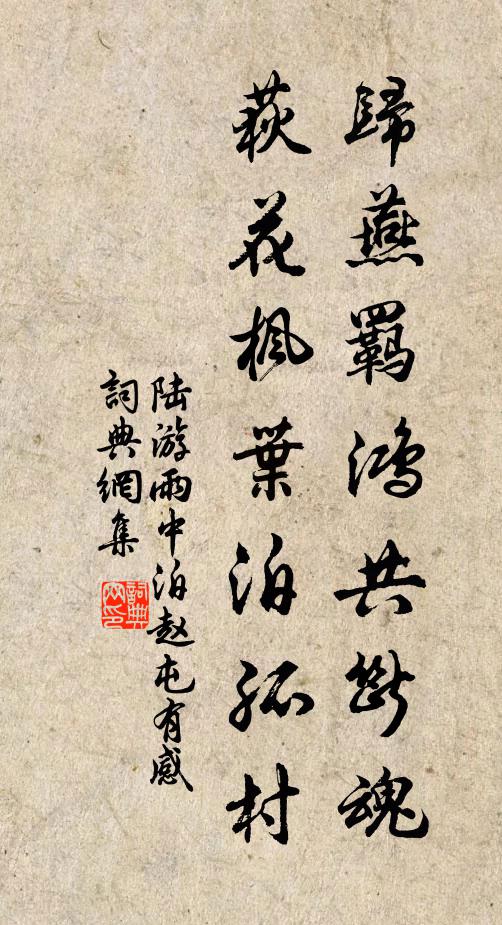 歸燕羈鴻共斷魂
荻花楓葉泊孤村
陆游雨中泊赵屯有感
詞典網集
詞典網印